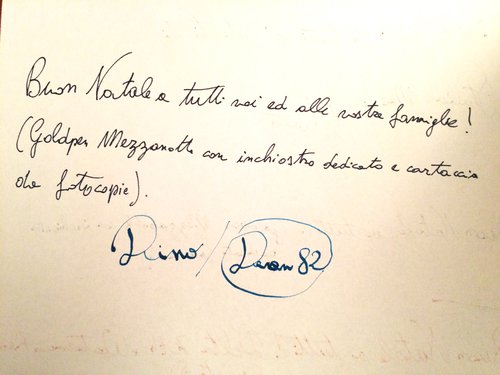 Buon Natale a tutti voi ed alle vostre famiglie!
(Goldpen Mezzanotte con inchiostro dedicato e cartaccia
da fotocopie).
Dino / Daran 82